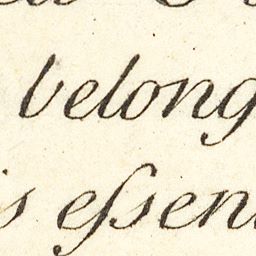 belong
s eſsen